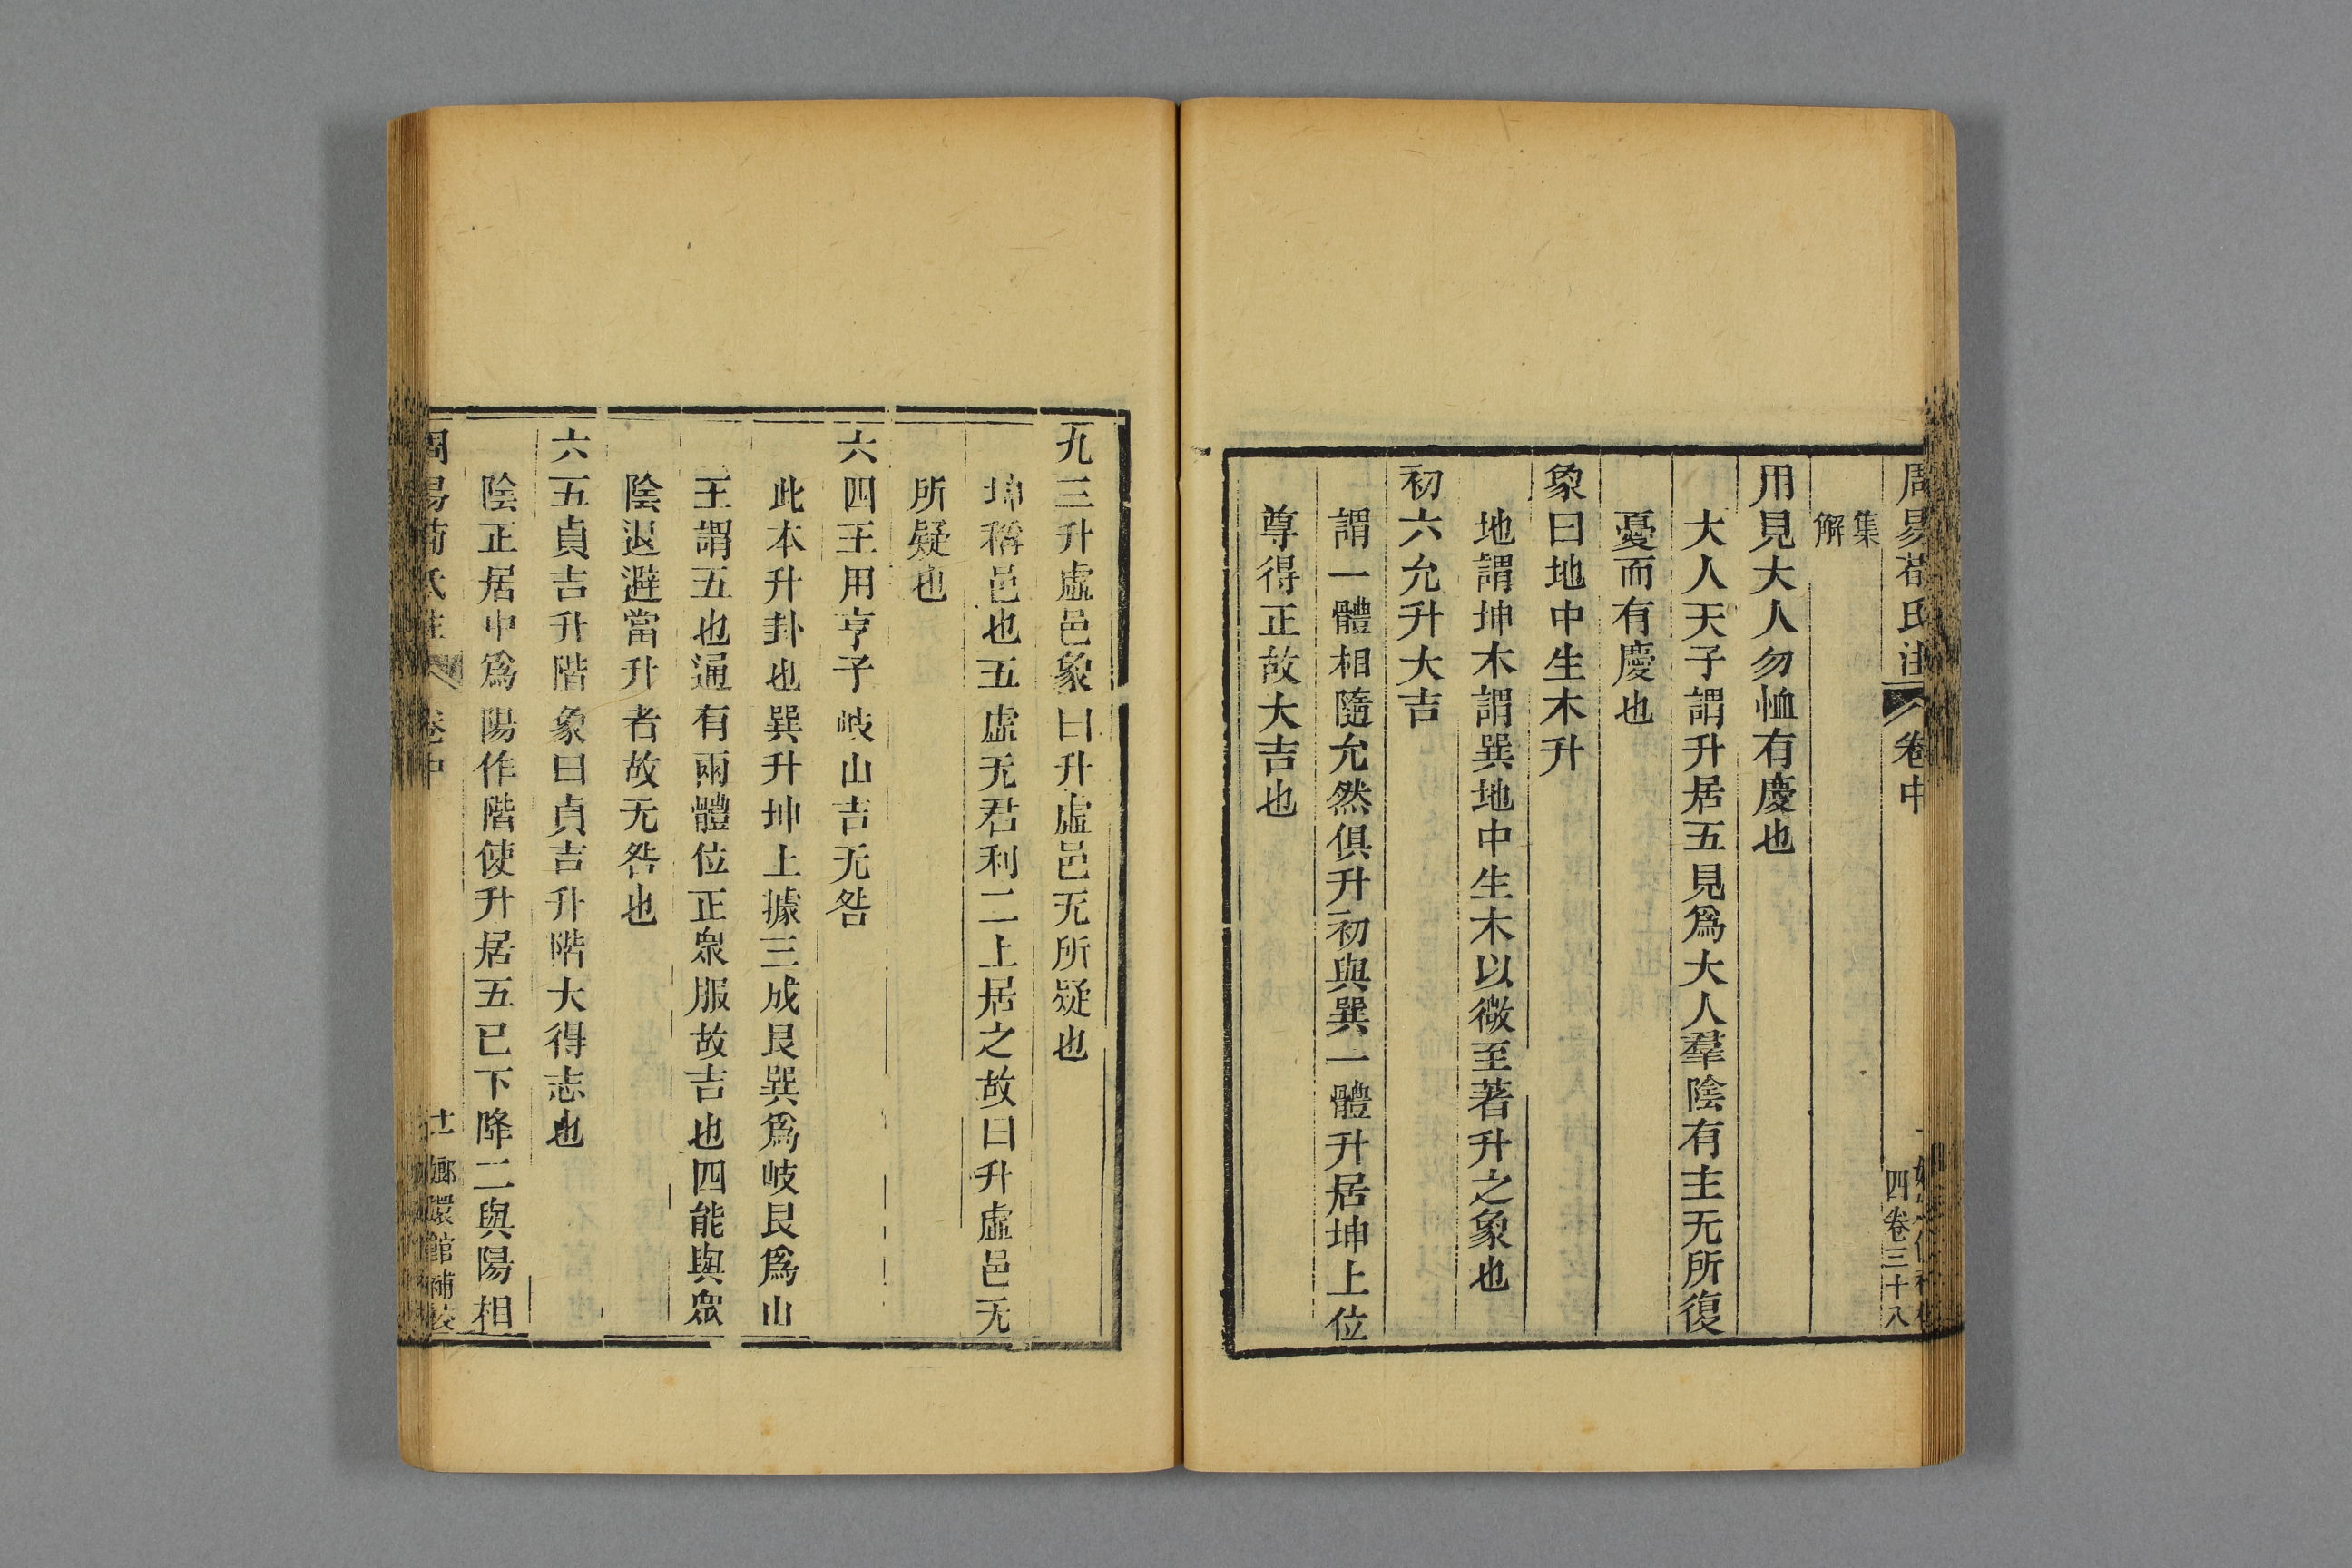 周易荀氏注 卷中
四卷三十八
集
解
用見大人勿恤有慶也
大人天子謂升居五見爲大人羣陰有主无所復
憂而有慶也
象曰地中生木升
地謂坤木謂巽地中生木以微至著升之象也
初六允升大吉
謂一體相隨允然俱升初與巽一體升居坤上位
尊得正故大吉也
九三升虛邑象曰升虛邑无所疑也
坤稱邑也五虛无君利二上居之故曰升虛邑无
所疑也
六四王用亨于岐山吉无咎
此本升卦也巽升坤上據三成艮巽爲岐艮爲山
王謂五也通有兩體位正衆服故吉也四能與衆
陰退避當升者故无咎也
六五貞吉升階象曰貞吉升階大得志也
陰正居中爲陽作階使升居五已下降二與陽相
周易荀氏注 卷中
嫏嬛館補校